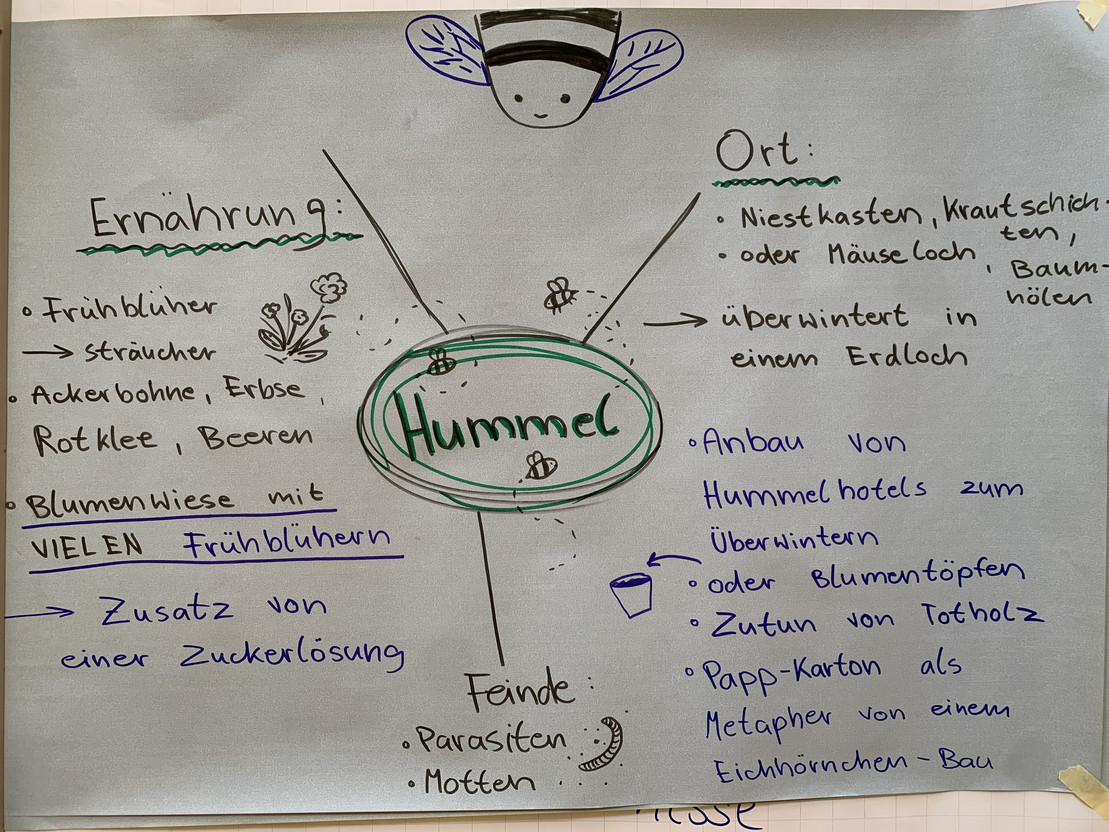 Ernährung:
• Frühblüher
→ sträucher
• Ackerbohne, Erbse,
Rotklee, Beeren
• Blumenwiese mit
VIELEN Frühblühern
→ Zusatz von
einer Zuckerlösung
Hummel
Ort:
• Niestkasten, Krautschich-
ten,
• oder Mäuseloch, Baum-
hölen
→ überwintert in
einem Erdloch
• Anbau von
Hummelhotels zum
Überwintern
• oder Blumentöpfen
• Zutun von Totholz
• Papp-Karton als
Metapher von einem
Eichhörnchen-Bau
Feinde:
• Parasiten
• Motten